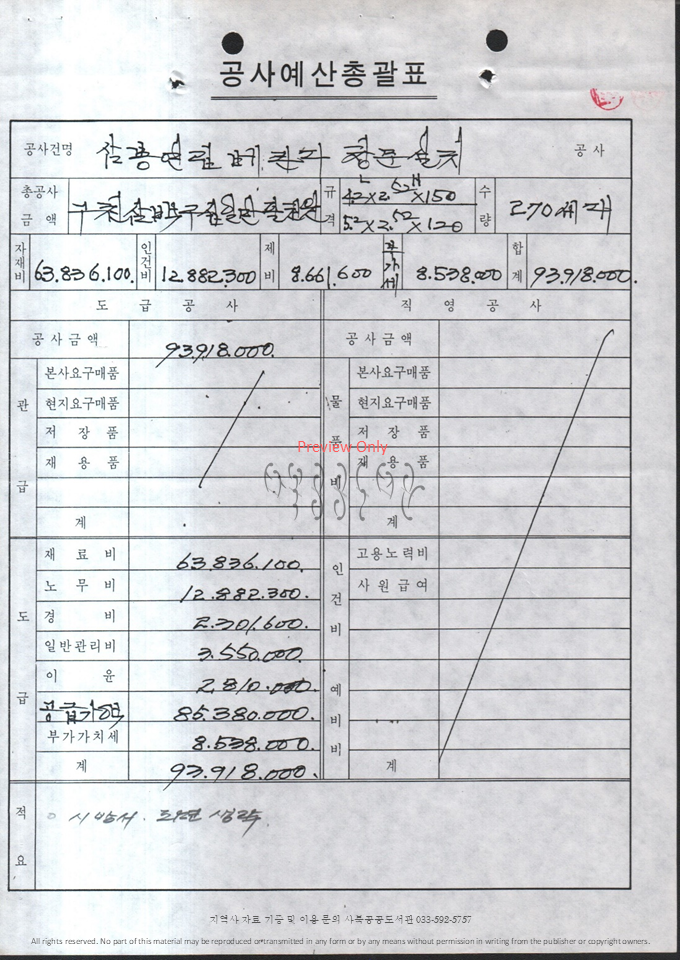 공사예산총괄표
공사건명 삼용연립 베란다 창문설치 공사
총공사 금액 구천삼백구십일만팔천원 규격 4.2×2.52×150 5.2×2.52×120 수량 270세대
자재비 63.836.100. 인건비 12.882.300 제비 8.661.600 부가세 8.538.000 합계 93.918.000.
도급공사 직영공사
공사금액 93.918.000. 공사금액
관급 본사요구매품 물품비 본사요구매품
현지요구매품 현지요구매품
저장품 저장품
Preview Only
재용품 재용품
계 계
도급 재료비 63.836.100. 인건비 고용노력비
노무비 12.882.300. 사원급여
경비 2.301.600.
일반관리비 3.550.000.
이윤 2.810.000. 예비비
공급가액 85.380.000.
부가가치세 8.538.000.
계 93.918.000. 계
적요 ○ 시방서. 도면 생략
지역사 자료 기증 및 이용 문의 사북공공도서관 033-592-5757
All rights reserved. No part of this material may be reproduced or transmitted in any form or by any means without permission in writing from the publisher or copyright owners.